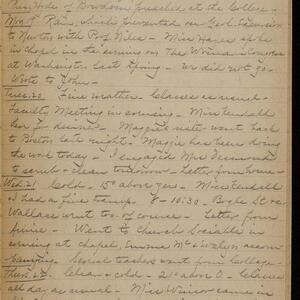 Pres. Hyde of Bowdoin preached at the College.
Mon. 19 Rain, which prevented our Geol. Excursion
to Newton with Prof. Niles - Miss Hazard spoke
in chapel in the evening on The Woman's Council
at Washington last Spring. We did not go.
Wrote to John.
Tues. 20. Fine weather. Classes as usual.
Faculty Meeting in evening. Miss Kendall
here for dinner. Maggie's sister went back
to Boston last night. Maggie has been doing
the work today - I engaged Mrs.
to scrub & clean tomorrow - Letter from home -
Wed. 21 Cold. 15° above zero. Miss Kendall
& I had a fine tramp. 8 - 10:30 - Boyle St &c
Wallace went too of course - Letter from
Fannie - Went to Church Sociable in
evening at chapel, Emma Mc & Evelyn accom-
panying. Several teachers went from College
Thurs. 22. Clear & cold - 21° above 0. Classes
all day as usual. Miss came in